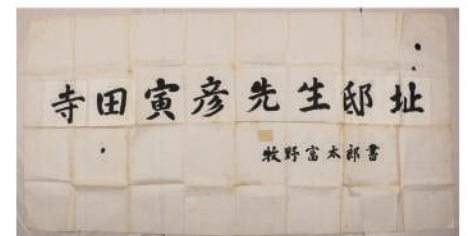 寺田寅彦先生邸址
牧野富太郎書